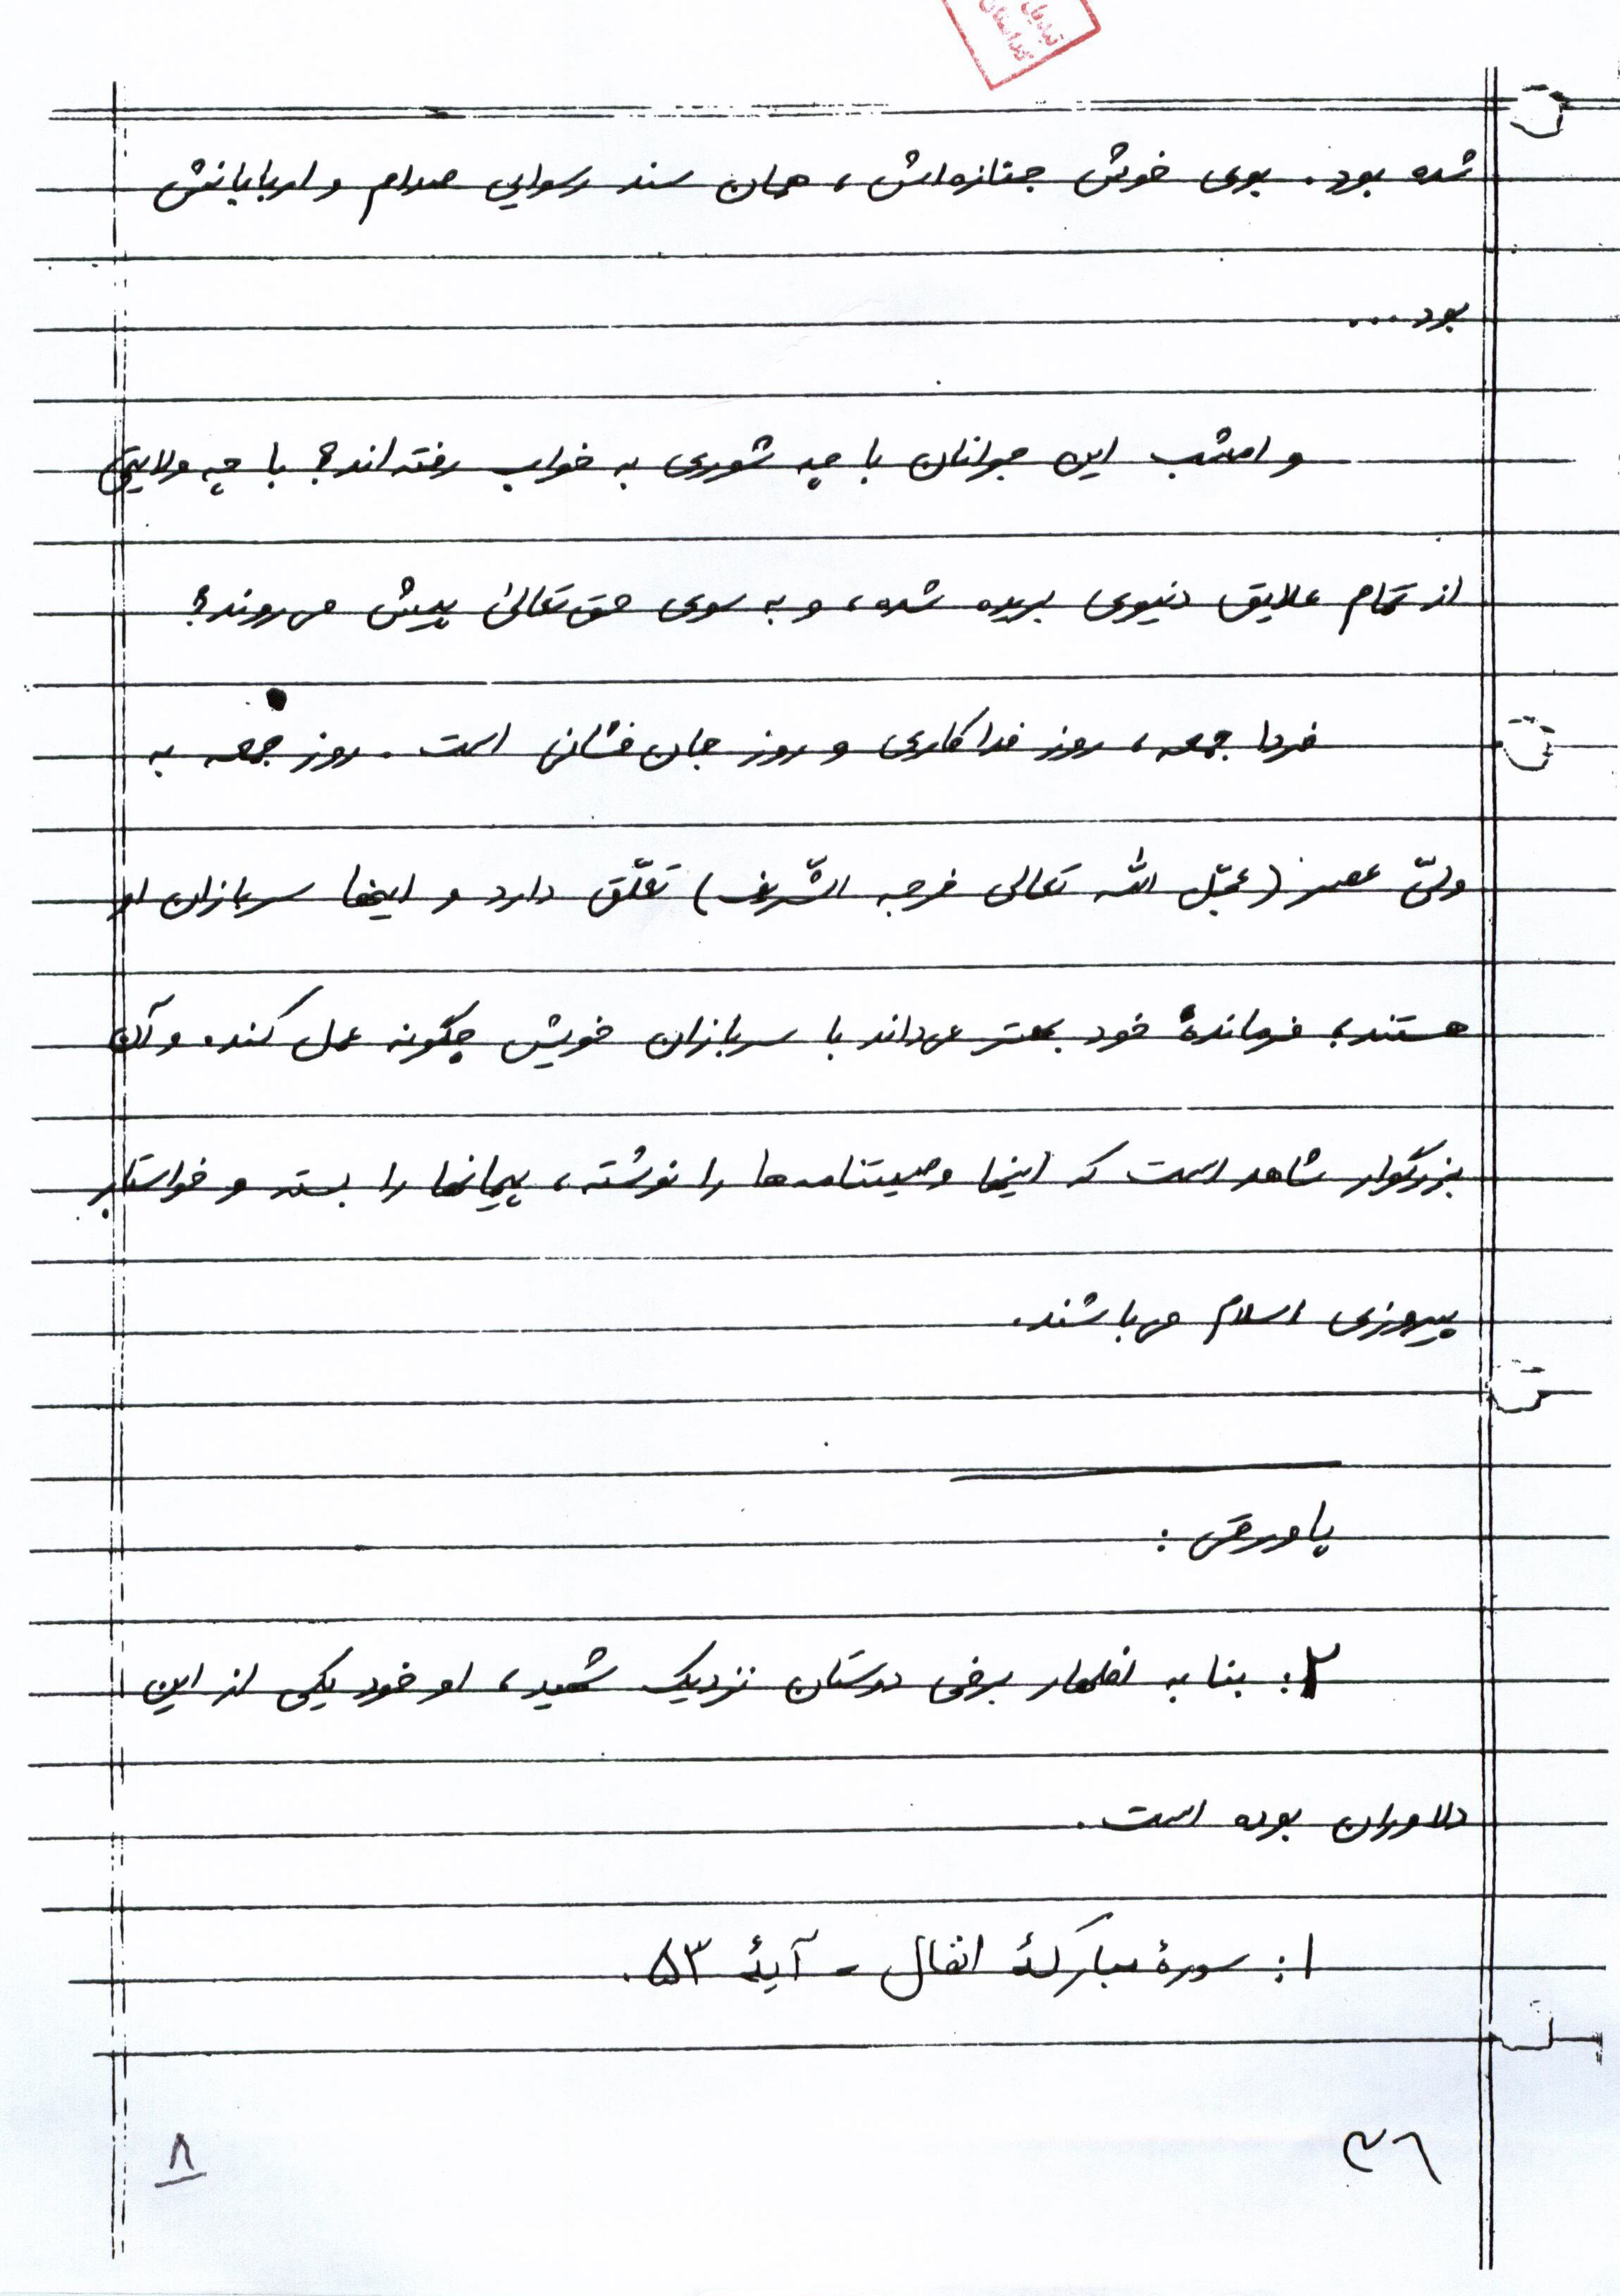 شده بود. بوی خوش جنازه‌اش، همان سند رسوایی صدام و اربابانش
بود...
و امشب این جوانان با چه شوری به خواب رفته‌اند؟ با چه ولایتی
از تمام علایق دنیوی بریده شده، و به سوی حق تعالیٰ پیش می‌روند؟
فردا جمعه، روز فداکاری و روز جان‌فشانی است. روز جمعه به
ولیّ عصر (عجّل اللّه تعالی فرجه الشّریف) تعلّق دارد و اینها سربازان او
هستند؛ فرماندهٔ خود بهتر می‌داند با سربازان خویش چگونه عمل کند. و آن
بزرگوار شاهد است که اینها وصیتنامه‌ها را نوشته، پیمانها را بسته و خواستار
پیروزی اسلام می‌باشند.
پاورقی:
۲: بنا به اظهار برخی دوستان نزدیک شهید، او خود یکی از این
دلاوران بوده است.
۱: سورهٔ مبارکهٔ انفال - آیهٔ ۵۳.
۳۶
۸